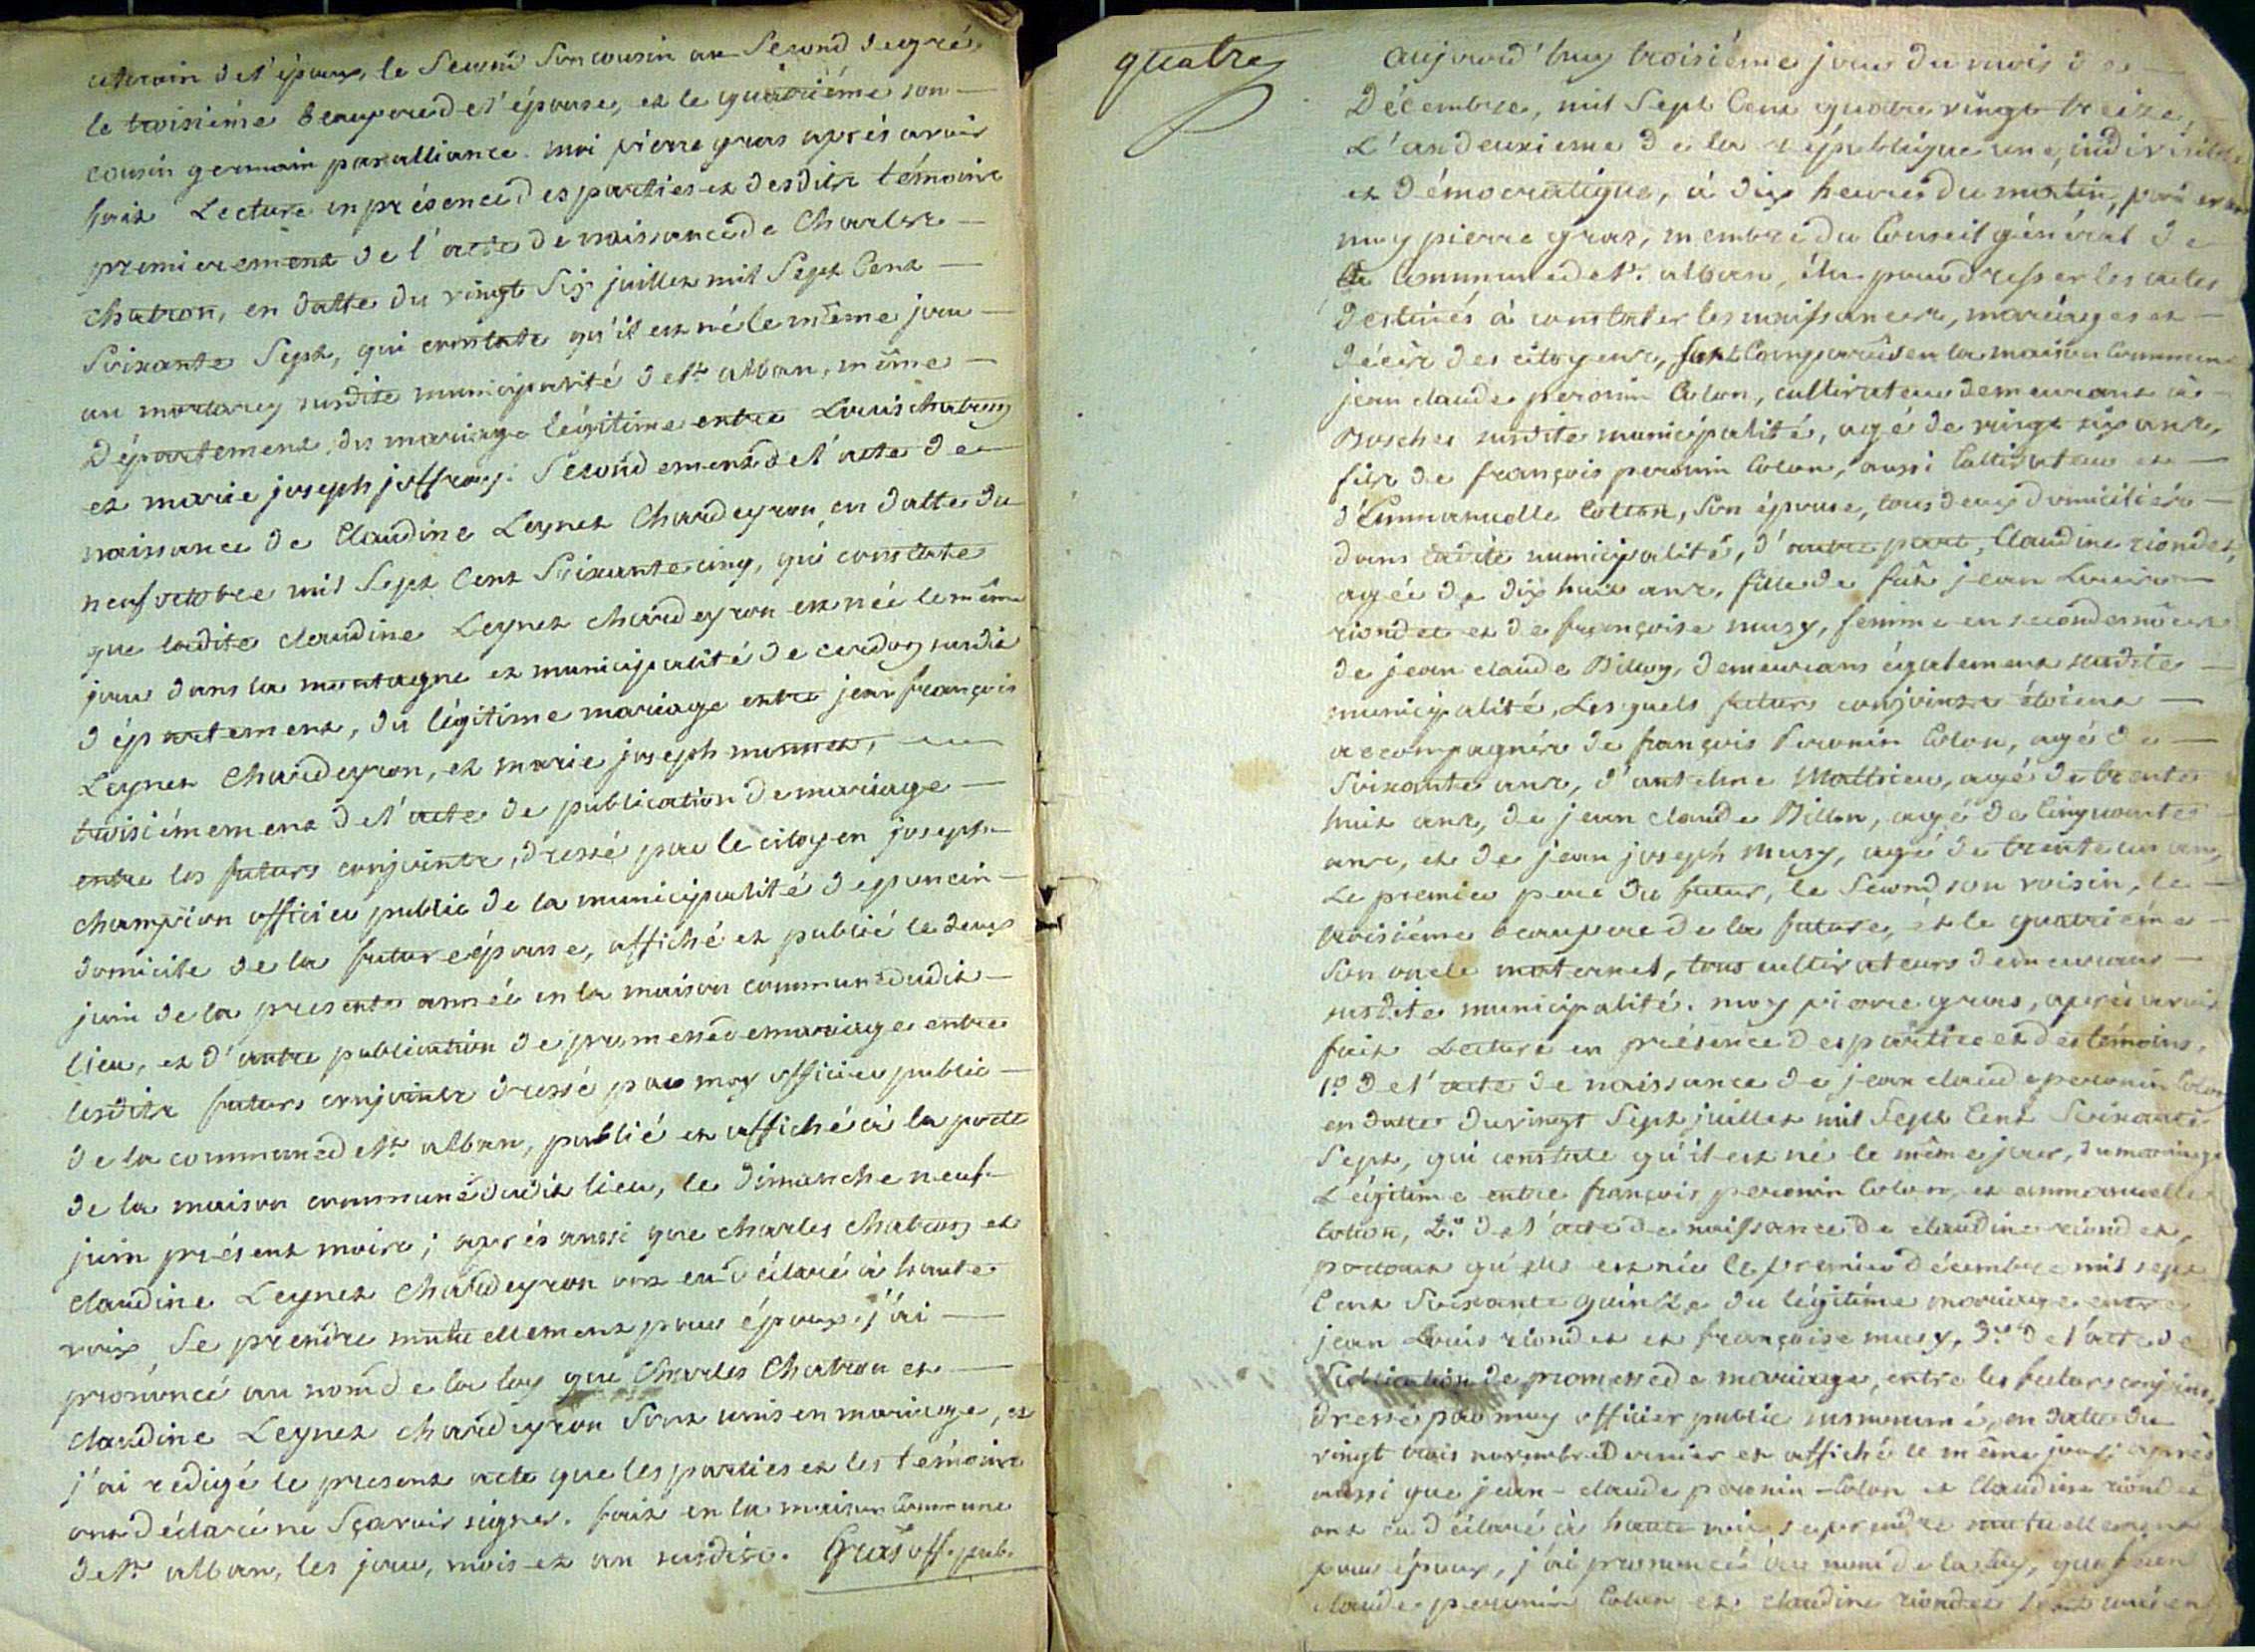 uterain de l'époux, le second son cousin au second degré
le troisième beaupere de l'épouse, et le quatrième son
cousin germain par alliance. moi pierre gras après avoir
fait Lecture en présence des parties et desdits témoins
premierement de l'acte de naissance de Charles
chatron, en datte du vingt six juillet mil Sept Cent
Soixante Sept, qui constate qu'il est né le même jour
au mortarey susdite municipalité de St. alban, même
département, du mariage légitime entre Louis chatron
et marie joseph joffray. Secondement de l'acte de
naissance de Claudine Leynet Chardeyron, en datte du
neuf octobre mil Sept Cent Soixante cinq, qui constate
que ladite claudine Leynet chardeyron est née le même
jour dans la montagne et municipalité de cerdon susdit
département, du légitime mariage entre jean françois
Leynet Chardeyron, et marie joseph monnet,
troisiémement de l'acte de publication de mariage
entre les futurs conjoints, dressé par le citoyen joseph
champion officier public de la municipalité de poncin
domicile de la future épouse, affiché et publié le deux
juin de la presente année en la maison commune dudit
lieu, et d'autre publication de promesse de mariage entre
lesdits futurs conjoints dressé par moy officier public
de la commune de St. alban, publié et affiché à la porte
de la maison commune dudit lieu, le dimanche neuf
juin présent mois; après aussi que charles chatron et
claudine Leynet Chardeyron ont eu déclaré à haute
voix Se prendre mutuellement pour époux, j'ai
prononcé au nom de la loy que Charles Chatron et
claudine Leynet chardeyron Sont unis en mariage, et
j'ai rédigé le present acte que les parties et les témoins
ont déclaré ne Sçavoir signer. fait en la maison Commune
de St. alban, les jour, mois et an susdits. Gras off. pub.
quatre
aujourd'huy troisiéme jour du mois de
Décembre, mil Sept Cent quatre vingt treize,
L'an deuxieme de la république une, indivisible
et démocratique, à dix heures du matin, par devant
moy pierre gras, membre du Conseil général de
la Commune de St. alban, élu pour dresser les actes
destinés à constater les naissances, mariages et
décès des citoyens, sont Comparus en la maison Commune
jean claude peronin Colon, cultivateur demeurant à
Bosches susdite municipalité, agé de vingt six ans,
fils de françois peronin Colon, aussi Cultivateur et
d'Emmanuelle Cotton, Son épouse, tous deux domiciliés
dans ladite municipalité, d'autre part, Claudine riondet,
agée de dix huit ans, fille de fût jean Louis
riondet et de françoise musy, femme en secondes nôces
de jean claude Billon, demeurans également susdite
municipalité, Lesquels futurs conjoints étoient
accompagnés de françois Peronin Colon, agé de
Soixante ans, d'anteline Mathieu, agé de trente
huit ans, de jean claude Billon, agé de Cinquante
ans, et de jean joseph Musy, agé de trente un ans,
Le premier pere du futur, le Second son voisin, le
troisiéme beaupere de la future, et le quatriéme
Son oncle maternel, tous cultivateurs demeurans
susdite municipalité. moy pierre gras, après avoir
fait Lecture en présence des parties et des témoins,
1o. de l'acte de naissance de jean claude peronin Colon
en datte du vingt Sept juillet mil Sept Cent Soixante
Sept, qui constate qu'il est né le même jour, du mariage
Légitime entre françois peronin Colon, et emmanuelle
Cotton, 2o. de l'acte de naissance de claudine riondet,
portant qu'elle est née le premier décembre mil sept
Cent Soixante quinze du légitime mariage entre
jean Louis riondet et françoise musy, 3o. de l'acte de
Publication de promesse de mariage, entre les futurs conjoints,
dressé par moy officier public susnommé, en date du
vingt trois novembre dernier et affiché le même jour; après
aussi que jean-claude peronin-Colon et Claudine riondet
ont eu déclaré à haute voix se prendre mutuellement
pour époux, j'ai prononcé au nom de la loy, que jean
claude peronin Colon et claudine riondet sont unis en